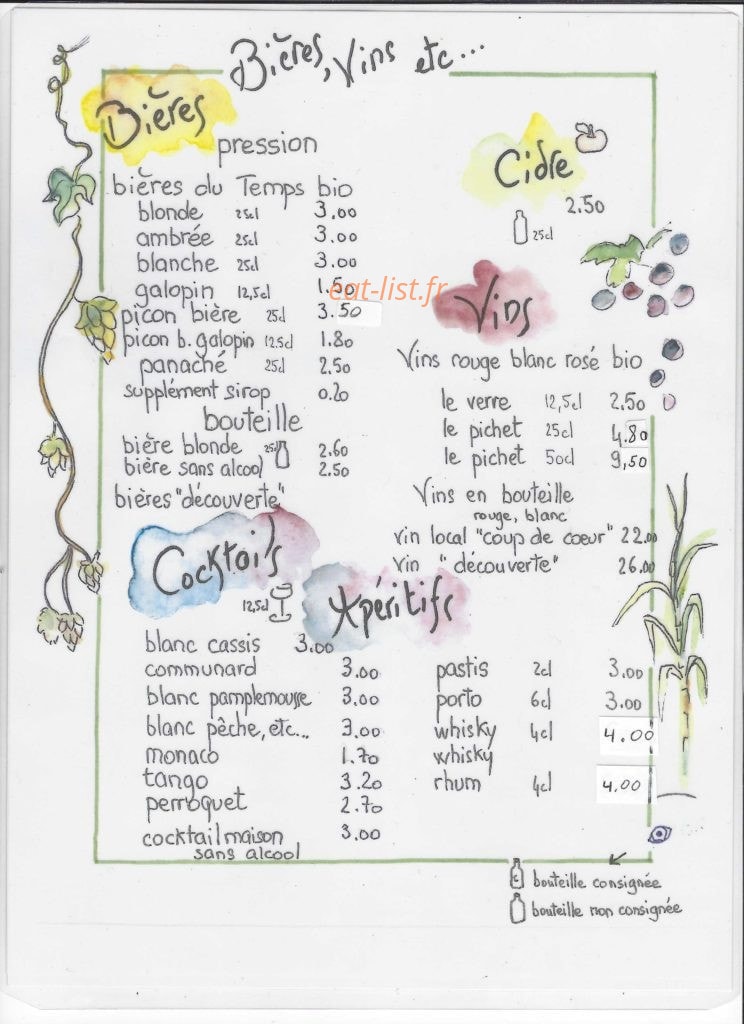 Bières, Vins etc...
Bières
pression
bières du Temps bio
blonde 25cl 3.00
ambrée 25cl 3.00
blanche 25cl 3.00
galopin 12,5cl 1.50
picon bière 25cl 3.50
picon b. galopin 12.5cl 1.80
panaché 25cl 2.50
supplément sirop 0.20
bouteille
bière blonde 25cl 2.60
bière sans alcool 2.50
bières "découverte"
Cidre
2.50
25cl
eat-list.fr
Vins
Vins rouge blanc rosé bio
le verre 12,5cl 2.50
le pichet 25cl 4.80
le pichet 50cl 9,50
Vins en bouteille
rouge, blanc
vin local "coup de coeur" 22.00
vin "découverte" 26.00
Cocktails
12,5cl
blanc cassis 3.00
communard 3.00
blanc pamplemousse 3.00
blanc pêche, etc... 3.00
monaco 1.70
tango 3.20
perroquet 2.70
cocktail maison 3.00
sans alcool
Apéritifs
pastis 2cl 3.00
porto 6cl 3.00
whisky 4cl 4.00
whisky
rhum 4cl 4.00
bouteille consignée
bouteille non consignée